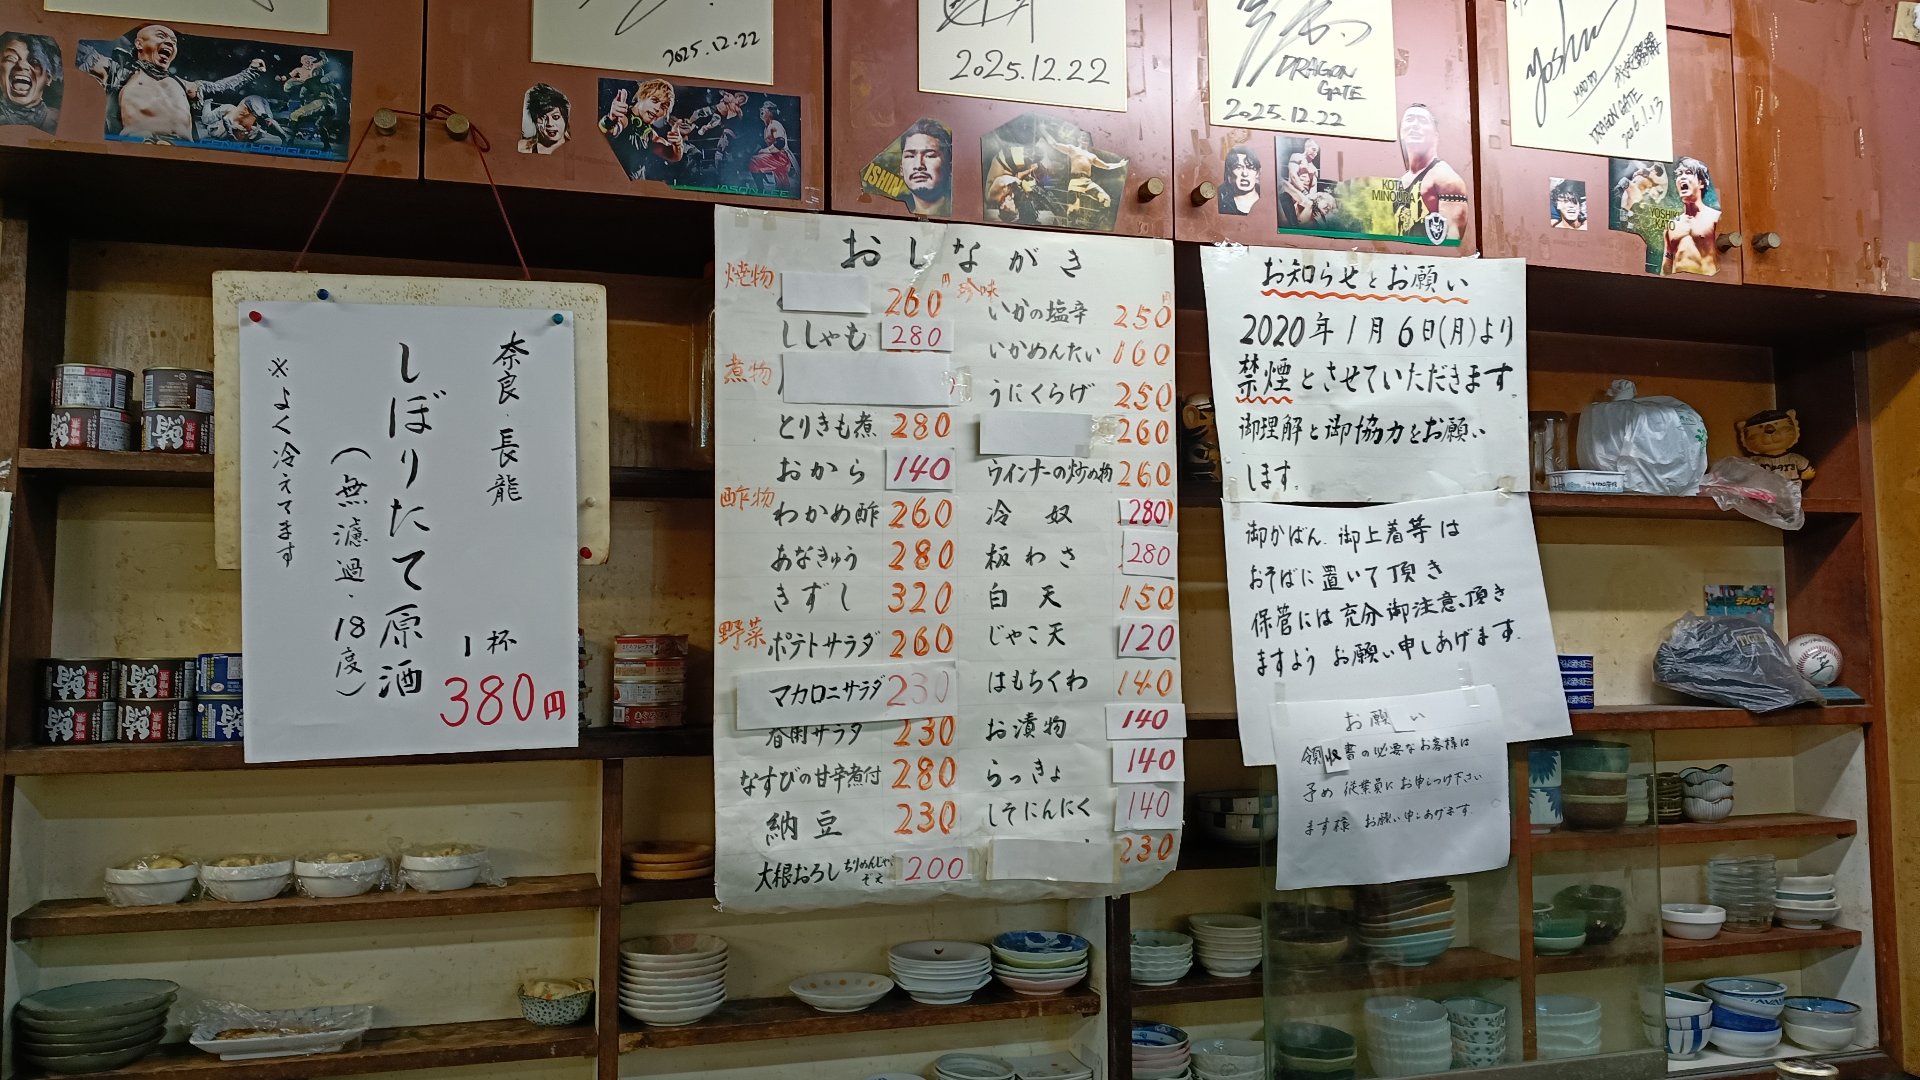 2025.12.22
2025.12.22
DRAGON
GATE
2025.12.22
DRAGON GATE
2026.1.13
JASON LEE
ISHIN
KOTA
MINOURA
YOSHIKI
KATO
奈良・長龍
しぼりたて原酒
(無濾過・18度)
※よく冷えてます
1杯
380円
おしながき
焼物
260円
ししゃも 280
煮物
とりきも煮 280
おから 140
酢物
わかめ酢 260
あなきゅう 280
きずし 320
野菜
ポテトサラダ 260
マカロニサラダ 230
春雨サラダ 230
なすびの甘辛煮付 280
納豆 230
大根おろし ちりめんじゃこ 200
珍味
いかの塩辛 250円
いかめんたい 160
うにくらげ 250
260
ウインナーの炒め物 260
冷奴 280
板わさ 280
白天 150
じゃこ天 120
はもちくわ 140
お漬物 140
らっきょ 140
しそにんにく 140
230
お知らせとお願い
2020年1月6日(月)より
禁煙とさせていただきます。
御理解と御協力をお願い
します。
御かばん、御上着等は
おそばに置いて頂き
保管には充分御注意、頂き
ますようお願い申しあげます。
お願い
領収書の必要なお客様は
予め従業員にお申しつけ下さい
ます様 お願い申しあげます。